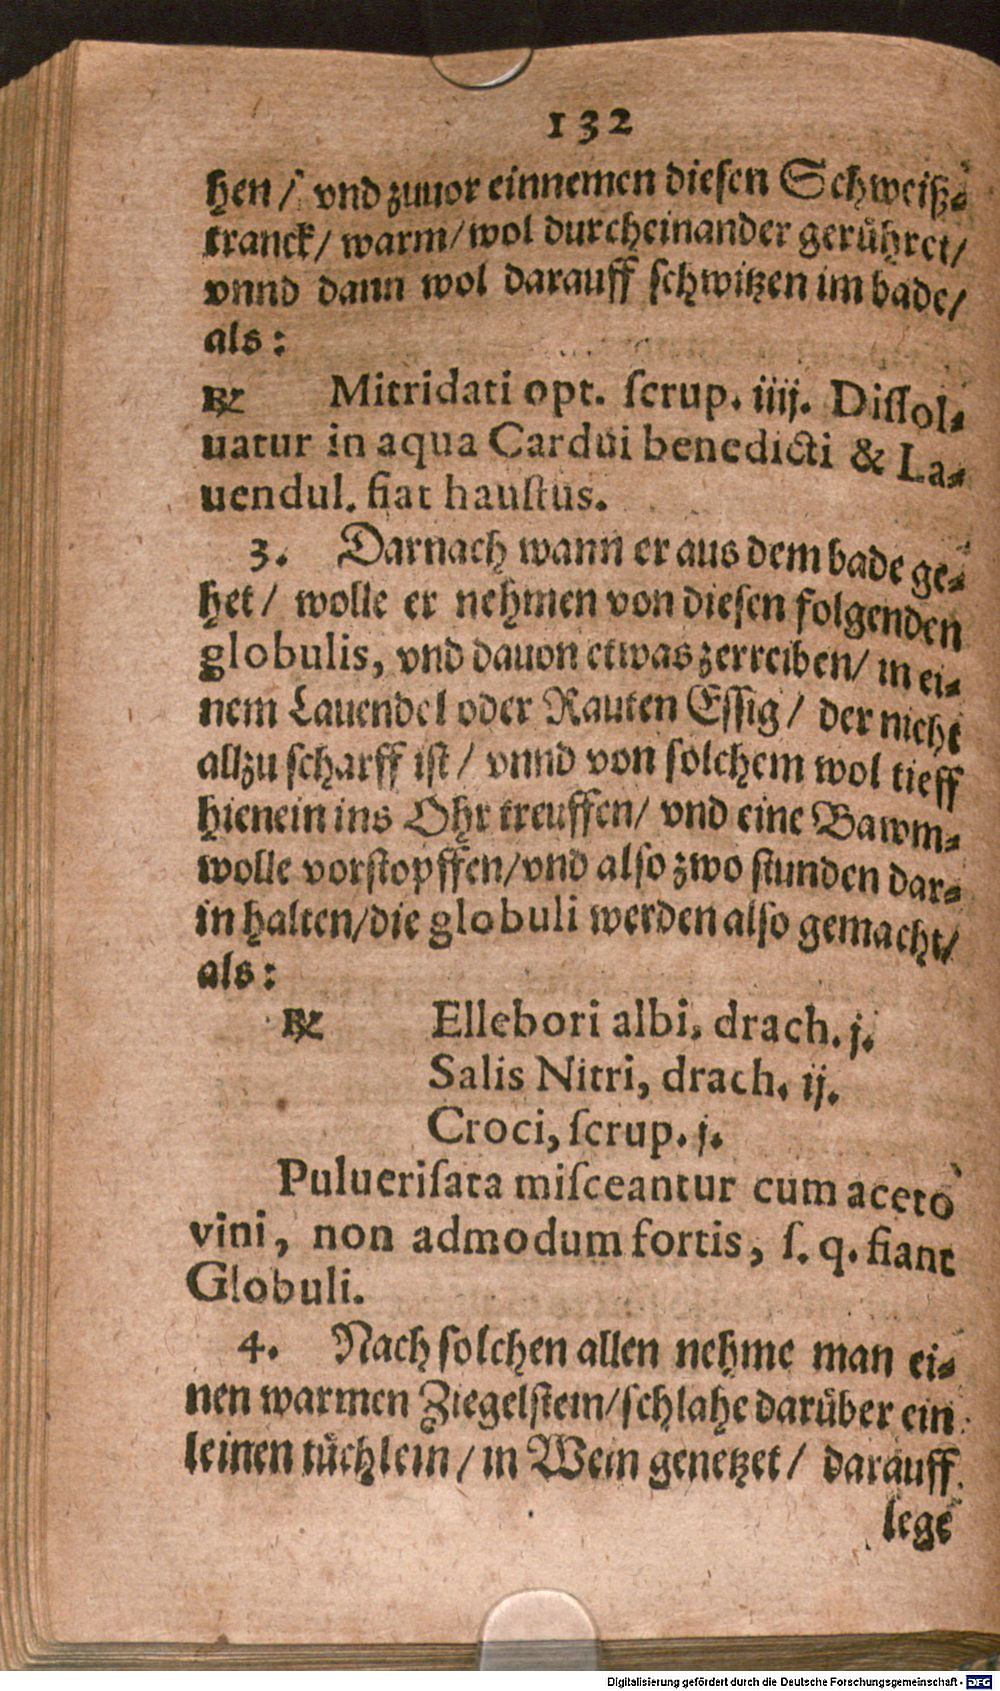 132
hen/ vnd zuuor einnemen diesen Schweiß-
tranck/ warm/ wol durcheinander gerühret/
vnnd dann wol darauff schwitzen im bade/
als:
℞ Mitridati opt. ſcrup. iiij. Diſſol-
uatur in aqua Cardui benedicti & La-
uendul. fiat hauſtus.
3. Darnach wann er aus dem bade ge-
het/ wolle er nehmen von diesen folgenden
globulis, vnd dauon etwas zerreiben/ in ei-
nem Lauendel oder Rauten Eſſig/ der nicht
allzu ſcharff iſt/ vnnd von ſolchem wol tieff
hienein ins Ohr treuffen/ vnd eine Bawm-
wolle vorſtopffen/ vnd alſo zwo ſtunden dar-
in halten/ die globuli werden alſo gemacht/
als:
℞ Ellebori albi, drach. j.
Salis Nitri, drach. ij.
Croci, ſcrup. j.
Pulueriſata miſceantur cum aceto
vini, non admodum fortis, ſ. q. fiant
Globuli.
4. Nach ſolchen allen nehme man ei-
nen warmen Ziegelſtein/ ſchlahe darüber ein
leinen tüchlein/ in Wein genetzet/ darauff
lege
Digitalisierung gefördert durch die Deutsche Forschungsgemeinschaft - DFG